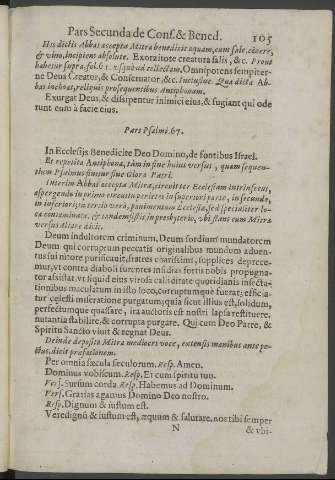 Pars Secunda de Conf. & Bened. 105
His dictis Abbas accepta Mitra benedicit aquam, cum sale, cinere,
& vino, incipiens absolute. Exorcizo te creatura salis, &c. Prout
habetur supra fol. 61. & sequ. ad collectam. Omnipotens sempiter-
ne Deus Creator, & Conservator, &c. Inclusive. Qua dicta Ab-
bas inchoet, reliquis prosequentibus Antiphonam.
Exurgat Deus, & dissipentur inimici eius, & fugiant qui ode
runt eum à facie eius.
Pars Psalmi. 67.
In Ecclesijs Benedicite Deo Domino, de fontibus Israel.
Et repetita Antiphona, tam in fine huius versus, quam sequen-
tium Psalmus finitur sine Gloria Patri.
Interim Abbas accepta Mitra, circuit ter Ecclesiam intrinsecus,
aspergendo in primo circuitu parietes in superiori parte, in secundo,
in inferiori, in tertio verò, pavimentum Ecclesiæ, sed specialiter lo-
ca contaminata. & tandem sistit in presbyterio, vbi stans cum Mitra
versus Altare dicit.
Deum indultorem criminum, Deum sordium mundatorem
Deum qui corruptum peccatis originalibus mundum adven-
tus sui nitore purificavit, fratres charissimi, supplices deprece-
mur, vt contra diaboli furentes insidias fortis nobis propugna-
tor assistat. vt siquid eius virosa calliditate quotidianis infesta-
tionibus maculatum in isto loco, corruptumquè fuerat, efficia-
tur celesti miseratione purgatum, quia sicut illius est, solidum,
perfectumque quassare, ita auctoris est nostri lapsa restituere.
nutantia stabilire, & corrupta purgare. Qui cum Deo Patre, &
Spiritu Sancto vivit & regnat Deus.
Deinde deposita Mitra mediocri voce, extensis manibus ante pe-
ctus, dicit præfationem.
Per omnia sæcula sæculorum. Resp. Amen.
Dominus vobiscum. Resp. Et cum spiritu tuo.
Vers. Sursum corda. Resp. Habemus ad Dominum.
Vers. Gratias agamus Domino Deo nostro.
Resp. Dignum & iustum est.
Verè dignũ & iustum est, æquum & salutare, nos tibi semper
N & vbi-